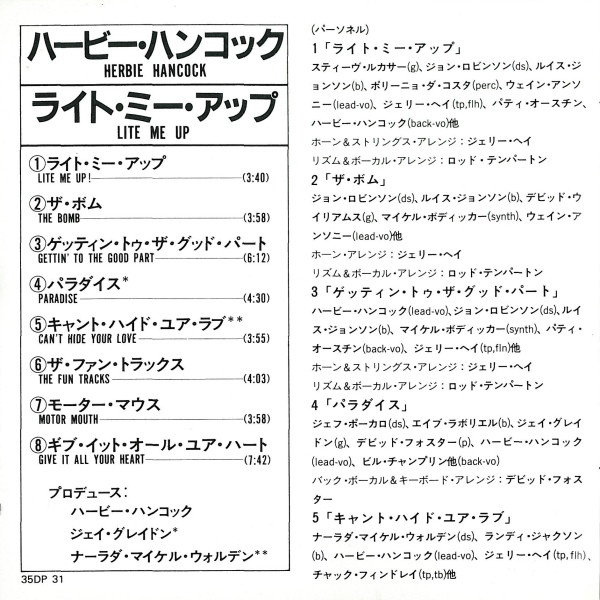 ハービー・ハンコック
HERBIE HANCOCK
ライト・ミー・アップ
LITE ME UP
①ライト・ミー・アップ
LITE ME UP! (3:40)
②ザ・ボム
THE BOMB (3:58)
③ゲッティン・トゥ・ザ・グッド・パート
GETTIN' TO THE GOOD PART (6:12)
④パラダイス*
PARADISE (4:30)
⑤キャント・ハイド・ユア・ラブ**
CAN'T HIDE YOUR LOVE (3:55)
⑥ザ・ファン・トラックス
THE FUN TRACKS (4:03)
⑦モーター・マウス
MOTOR MOUTH (3:58)
⑧ギブ・イット・オール・ユア・ハート
GIVE IT ALL YOUR HEART (7:42)
プロデュース:
ハービー・ハンコック
ジェイ・グレイドン*
ナーラダ・マイケル・ウォルデン**
35DP 31
(パーソネル)
1「ライト・ミー・アップ」
スティーヴ・ルカサー(g)、ジョン・ロビンソン(ds)、ルイス・ジ
ョンソン(b)、ポリーニョ・ダ・コスタ(perc)、ウェイン・アンソ
ニー(lead-vo)、ジェリー・ヘイ(tp,flh)、パティ・オースチン、
ハービー・ハンコック(back-vo)他
ホーン&ストリングス・アレンジ:ジェリー・ヘイ
リズム&ボーカル・アレンジ:ロッド・テンパートン
2「ザ・ボム」
ジョン・ロビンソン(ds)、ルイス・ジョンソン(b)、デビッド・ウ
イリアムス(g)、マイケル・ボディッカー(synth)、ウェイン・ア
ンソニー(lead-vo)他
ホーン・アレンジ:ジェリー・ヘイ
リズム&ボーカル・アレンジ:ロッド・テンパートン
3「ゲッティン・トゥ・ザ・グッド・パート」
ハービー・ハンコック(lead-vo)、ジョン・ロビンソン(ds)、ルイ
ス・ジョンソン(b)、マイケル・ボディッカー(synth)、パティ・
オースチン(back-vo)、ジェリー・ヘイ(tp,fln)他
ホーン&ストリングス・アレンジ:ジェリー・ヘイ
リズム&ボーカル・アレンジ:ロッド・テンパートン
4「パラダイス」
ジェフ・ポーカロ(ds)、エイブ・ラボリエル(b)、ジェイ・グレイ
ドン(g)、デビッド・フォスター(p)、ハービー・ハンコック
(lead-vo)、ビル・チャンプリン他(back-vo)
バック・ボーカル&キーボード・アレンジ:デビッド・フォス
ター
5「キャント・ハイド・ユア・ラブ」
ナーラダ・マイケル・ウォルデン(ds)、ランディ・ジャクソン
(b)、ハービー・ハンコック(lead-vo)、ジェリー・ヘイ(tp,flh)、
チャック・フィンドレイ(tp,tb)他